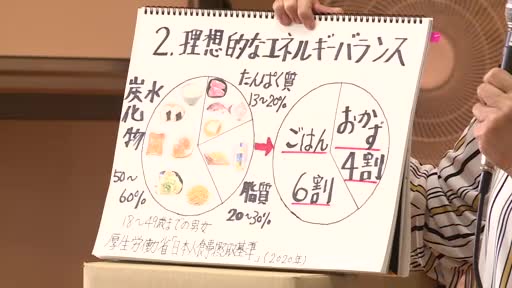 2.理想的なエネルギーバランス
炭水化物
50～60%
たんぱく質
13～20%
脂質
20～30%
ごはん
6割
おかず
4割
18～49歳までの男女
厚生労働省「日本人食事摂取基準」(2020年)